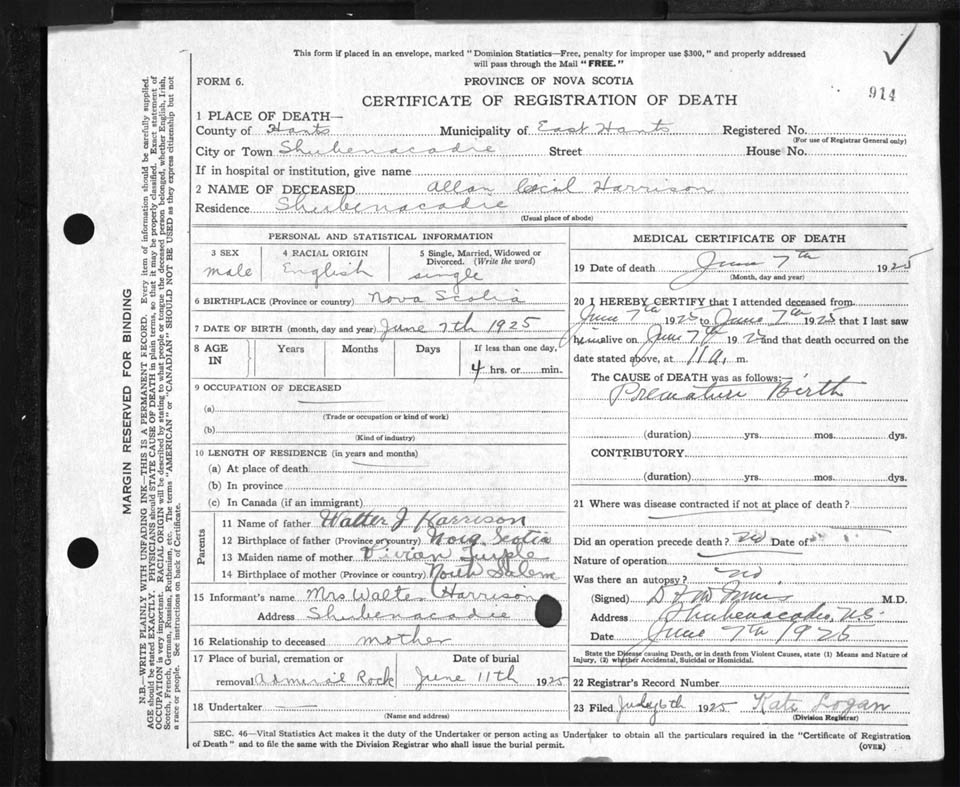 This form if placed in an envelope, marked "Dominion Statistics—Free, penalty for improper use $300," and properly addressed
will pass through the Mail "FREE."
FORM 6.
PROVINCE OF NOVA SCOTIA
914
CERTIFICATE OF REGISTRATION OF DEATH
1 PLACE OF DEATH—
County of Hants Municipality of East Hants Registered No.
(For use of Registrar General only)
City or Town Shubenacadie Street House No.
If in hospital or institution, give name
2 NAME OF DECEASED Allan Cecil Harrison
Residence Shubenacadie
(Usual place of abode)
PERSONAL AND STATISTICAL INFORMATION
3 SEX 4 RACIAL ORIGIN 5 Single, Married, Widowed or
Divorced. (Write the word)
male English single
6 BIRTHPLACE (Province or country) Nova Scotia
7 DATE OF BIRTH (month, day and year) June 7th 1925
8 AGE IN Years Months Days If less than one day,
4 hrs. or min.
9 OCCUPATION OF DECEASED
(a)
(Trade or occupation or kind of work)
(b)
(Kind of industry)
10 LENGTH OF RESIDENCE (in years and months)
(a) At place of death
(b) In province
(c) In Canada (if an immigrant)
Parents
11 Name of father Walter J Harrison
12 Birthplace of father (Province or country) Nova Scotia
13 Maiden name of mother Vivian Turple
14 Birthplace of mother (Province or country) North Salem
15 Informant's name Mrs Walter Harrison
Address Shubenacadie
16 Relationship to deceased mother
17 Place of burial, cremation or Date of burial
removal Admiral Rock June 11th 1925
18 Undertaker
(Name and address)
MEDICAL CERTIFICATE OF DEATH
19 Date of death June 7th 1925
(Month, day and year)
20 I HEREBY CERTIFY that I attended deceased from
June 7th 1925 to June 7th 1925 that I last saw
him alive on June 7th 1925 and that death occurred on the
date stated above, at 11 a. m.
The CAUSE of DEATH was as follows:
Premature Birth
(duration) yrs. mos. dys.
CONTRIBUTORY
(duration) yrs. mos. dys.
21 Where was disease contracted if not at place of death?
Did an operation precede death? no Date of
Nature of operation
Was there an autopsy? no
(Signed) M.D.
Address Shubenacadie, N.S.
Date June 7th 1925
State the Disease causing Death, or in death from Violent Causes, state (1) Means and Nature of
Injury, (2) whether Accidental, Suicidal or Homicidal.
22 Registrar's Record Number
23 Filed July 6th 1925 Kate Logan
(Division Registrar)
SEC. 46—Vital Statistics Act makes it the duty of the Undertaker or person acting as Undertaker to obtain all the particulars required in the "Certificate of Registration
of Death" and to file the same with the Division Registrar who shall issue the burial permit.
(OVER)
MARGIN RESERVED FOR BINDING
N.B.—WRITE PLAINLY WITH UNFADING INK—THIS IS A PERMANENT RECORD. Every item of information should be carefully supplied.
AGE should be stated EXACTLY. PHYSICIANS should STATE CAUSE OF DEATH in plain terms, so that it may be properly classified. Exact statement of
OCCUPATION is very important. RACIAL ORIGIN will be described by stating to what people or tongue the deceased person belonged, whether English, Irish,
Scotch, French, German, Russian, Ruthenian, etc. The terms "AMERICAN" or "CANADIAN" SHOULD NOT BE USED as they express citizenship but not
a race or people. See instructions on back of Certificate.